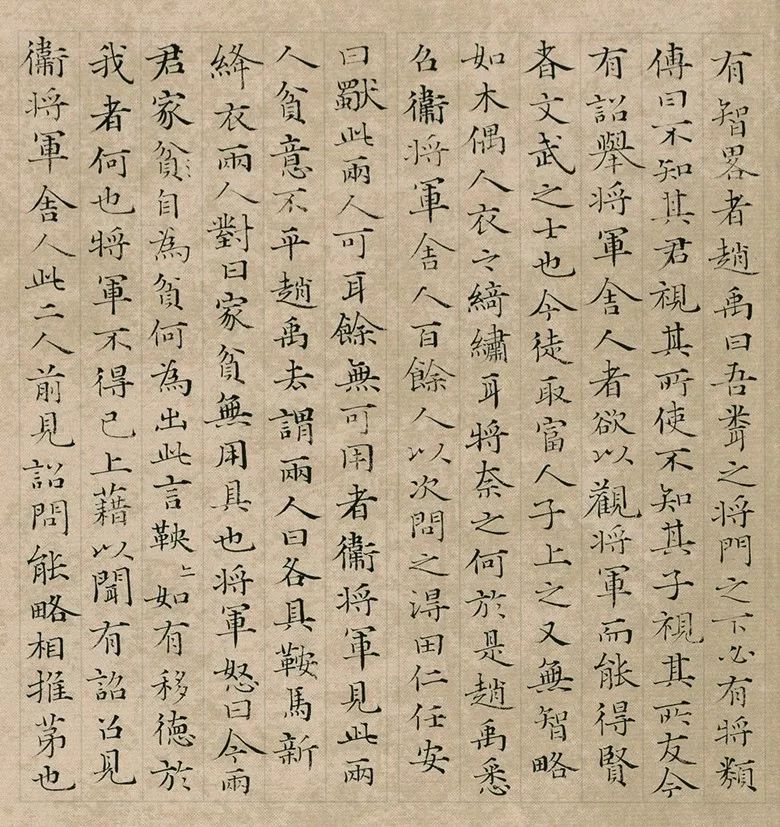 有智畧者趙禹曰吾聞之将門之下必有将類
傳曰不知其君視其所使不知其子視其所友今
有詔舉将軍舎人者欲以觀将軍而能得賢
者文武之士也今徒取富人子上之又無智略
如木偶人衣之綺繡耳将奈之何於是趙禹悉
召衞将軍舎人百餘人以次問之得田仁任安
曰獸此兩人可耳餘無可用者衞将軍見此兩
人貧意不平趙禹去謂兩人曰各具鞍馬新
絳衣兩人對曰家貧無用具也将軍怒曰今兩
君家貧自為貧何為出此言鞅〻如有移德於
我者何也将軍不得已上藉以聞有詔召見
衞将軍舎人此二人前見詔問能略相推苐也